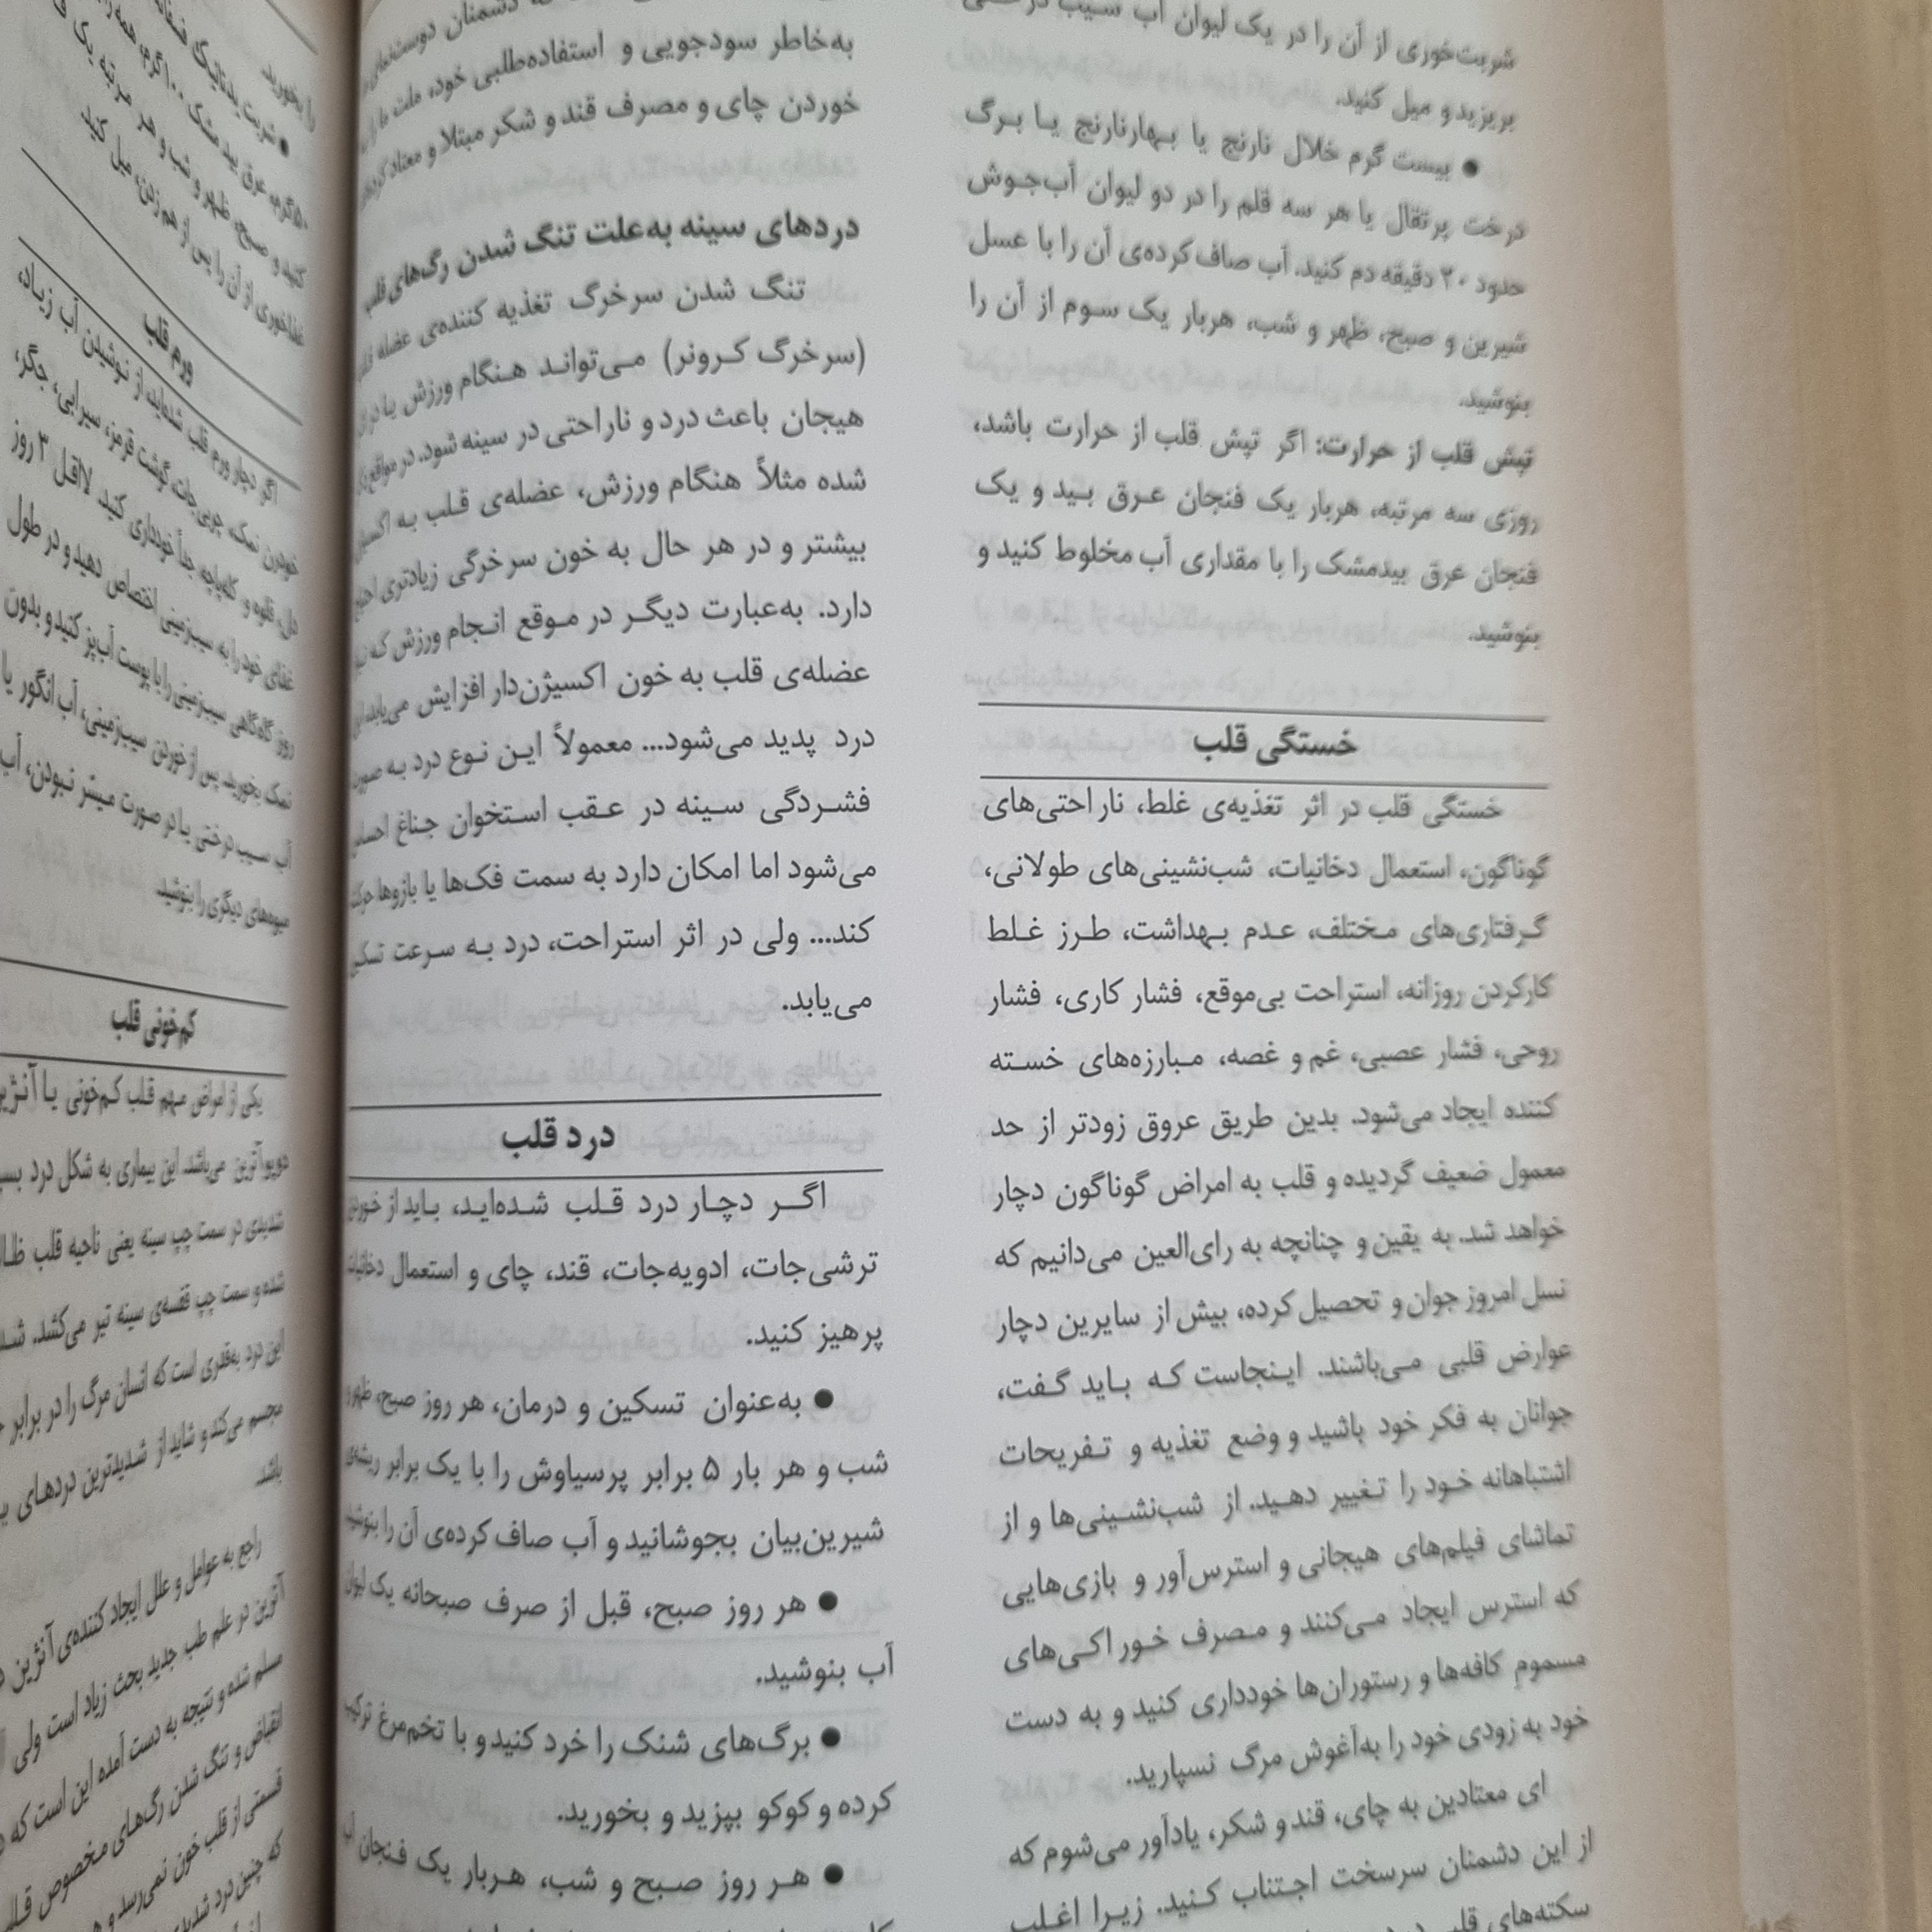 شربت‌خوری از آن را در یک لیوان آب سیب درختی
بریزید و میل کنید.
● بیست گرم خلال نارنج یا بهارنارنج یا برگ
درخت پرتقال یا هر سه قلم را در دو لیوان آب‌جوش
حدود ۲۰ دقیقه دم کنید. آب صاف کرده‌ی آن را با عسل
شیرین و صبح، ظهر و شب، هربار یک سوم از آن را
بنوشید.
تپش قلب از حرارت: اگر تپش قلب از حرارت باشد،
روزی سه مرتبه، هربار یک فنجان عرق بید و یک
فنجان عرق بیدمشک را با مقداری آب مخلوط کنید و
بنوشید.
خستگی قلب
خستگی قلب در اثر تغذیه‌ی غلط، ناراحتی‌های
گوناگون، استعمال دخانیات، شب‌نشینی‌های طولانی،
گرفتاری‌های مختلف، عدم بهداشت، طرز غلط
کارکردن روزانه، استراحت بی‌موقع، فشار کاری، فشار
روحی، فشار عصبی، غم و غصه، مبارزه‌های خسته
کننده ایجاد می‌شود. بدین طریق عروق زودتر از حد
معمول ضعیف گردیده و قلب به امراض گوناگون دچار
خواهد شد. به یقین و چنانچه به رای‌العین می‌دانیم که
نسل امروز جوان و تحصیل کرده، بیش از سایرین دچار
عوارض قلبی می‌باشند. اینجاست که باید گفت،
جوانان به فکر خود باشید و وضع تغذیه و تفریحات
اشتباهانه خود را تغییر دهید. از شب‌نشینی‌ها و از
تماشای فیلم‌های هیجانی و استرس‌آور و بازی‌هایی
که استرس ایجاد می‌کنند و مصرف خوراکی‌های
مسموم کافه‌ها و رستوران‌ها خودداری کنید و به دست
خود به زودی خود را به‌آغوش مرگ نسپارید.
ای معتادین به چای، قند و شکر، یادآور می‌شوم که
از این دشمنان سرسخت اجتناب کنید. زیرا اغلب
سکته‌های قلبی
دشمنان
به‌خاطر سودجویی و استفاده‌طلبی خود، ملت ما را به
خوردن چای و مصرف قند و شکر مبتلا و معتاد کرده‌اند
دردهای سینه به‌علت تنگ شدن رگ‌های قلب
تنگ شدن سرخرگ تغذیه کننده‌ی عضله
(سرخرگ کرونر) می‌تواند هنگام ورزش یا در اثر
هیجان باعث درد و ناراحتی در سینه شود. در مواقع
شده مثلاً هنگام ورزش، عضله‌ی قلب به
بیشتر و در هر حال به خون سرخرگی زیادتری
دارد. به‌عبارت دیگر در موقع انجام ورزش که
عضله‌ی قلب به خون اکسیژن‌دار افزایش می‌یابد،
درد پدید می‌شود... معمولاً این نوع درد به
فشردگی سینه در عقب استخوان جناغ
می‌شود اما امکان دارد به سمت فک‌ها یا بازوها حرکت
کند... ولی در اثر استراحت، درد به سرعت
می‌یابد.
درد قلب
اگر دچار درد قلب شده‌اید، باید از خوردن
ترشی‌جات، ادویه‌جات، قند، چای و استعمال دخانیات
پرهیز کنید.
● به‌عنوان تسکین و درمان، هر روز صبح، ظهر و
شب و هر بار ۵ برابر پرسیاوش را با یک برابر ریشه‌ی
شیرین‌بیان بجوشانید و آب صاف کرده‌ی آن را بنوشید.
● هر روز صبح، قبل از صرف صبحانه یک لیوان
آب بنوشید.
● برگ‌های شنک را خرد کنید و با تخم‌مرغ ترکیب
کرده و کوکو بپزید و بخورید.
● هر روز صبح و شب، هربار یک فنجان
را بخورید.
ورم قلب
اگر دچار ورم قلب شده‌اید، از نوشیدن آب زیاد،
خوردن نمک، چربی‌جات، گوشت قرمز، سیرابی، جگر،
دل، قلوه و کله‌پاچه جداً خودداری کنید. لااقل ۳ روز
غذای خود را به سیب‌زمینی اختصاص دهید و در طول
روز گاه‌گاهی سیب‌زمینی را با پوست آب‌پز کنید و بدون
نمک بخورید. پس از خوردن سیب‌زمینی، آب انگور یا
آب سیب درختی یا در صورت میسر نبودن، آب
میوه‌های دیگری را بنوشید.
کم‌خونی قلب
یکی از امراض مهم قلب کم‌خونی یا
می‌باشد. این بیماری به شکل درد
شدیدی در سمت چپ سینه یعنی ناحیه قلب
شده و سمت چپ قفسه‌ی سینه تیر می‌کشد.
این درد به‌قدری است که انسان مرگ را در برابر
مجسم می‌کند و شاید از شدیدترین دردهای
باشد.
راجع به عوامل و علل ایجاد کننده‌ی آنژین
در علم طب جدید بحث زیاد است ولی
مسلم شده و نتیجه به دست آمده این است که
انقباض و تنگ شدن رگ‌های مخصوص
قسمتی از قلب خون نمی‌رسد و
که چنین درد